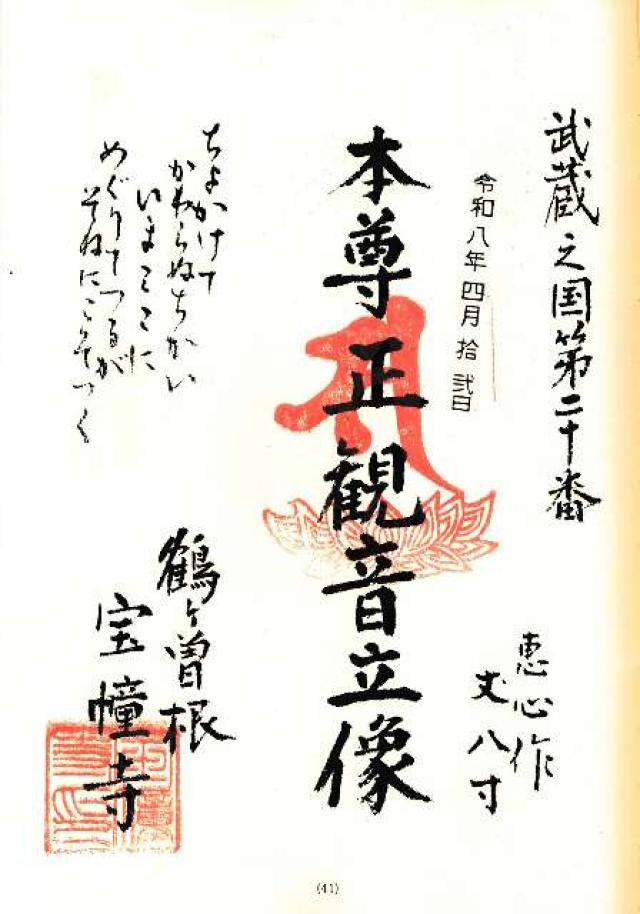 武蔵之国第二十番
令和八年四月拾弐日
恵心作
丈八寸
本尊正観音立像
ちよかけて
かわらぬちかい
いまここに
めぐりてつるが
そねにこそつく
鶴ヶ曽根
宝幢寺
(41)